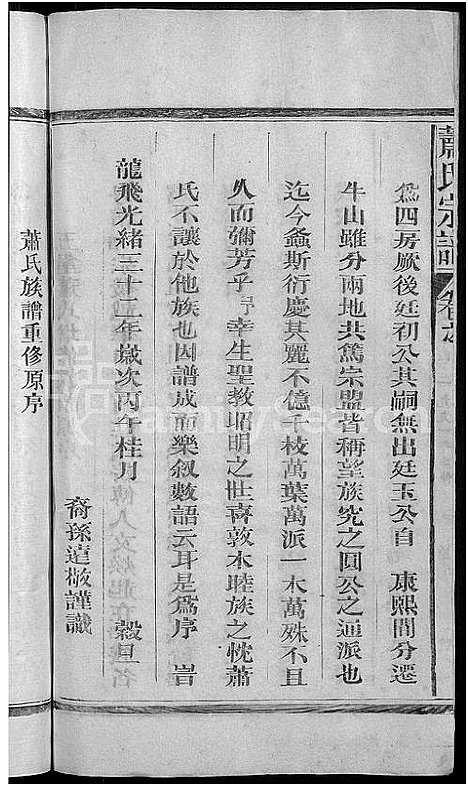 蕭氏宗譜 卷之
為四房厥後廷初公其嗣無出廷玉公自 康熙間分遷
牛山雖分兩地共篤宗盟皆稱望族究之圓公之通派也
迄今螽斯衍慶其麗不億千枝萬葉萬派一木萬殊不且
久而彌芳乎予幸生聖教昭明之世喜敦木睦族之忱蕭
氏不讓於他族也因譜成而樂叙數語云耳是為序 旹
龍飛光緒三十二年歲次丙午桂月 穀旦
裔孫遠 謹識
蕭氏族譜重修原序